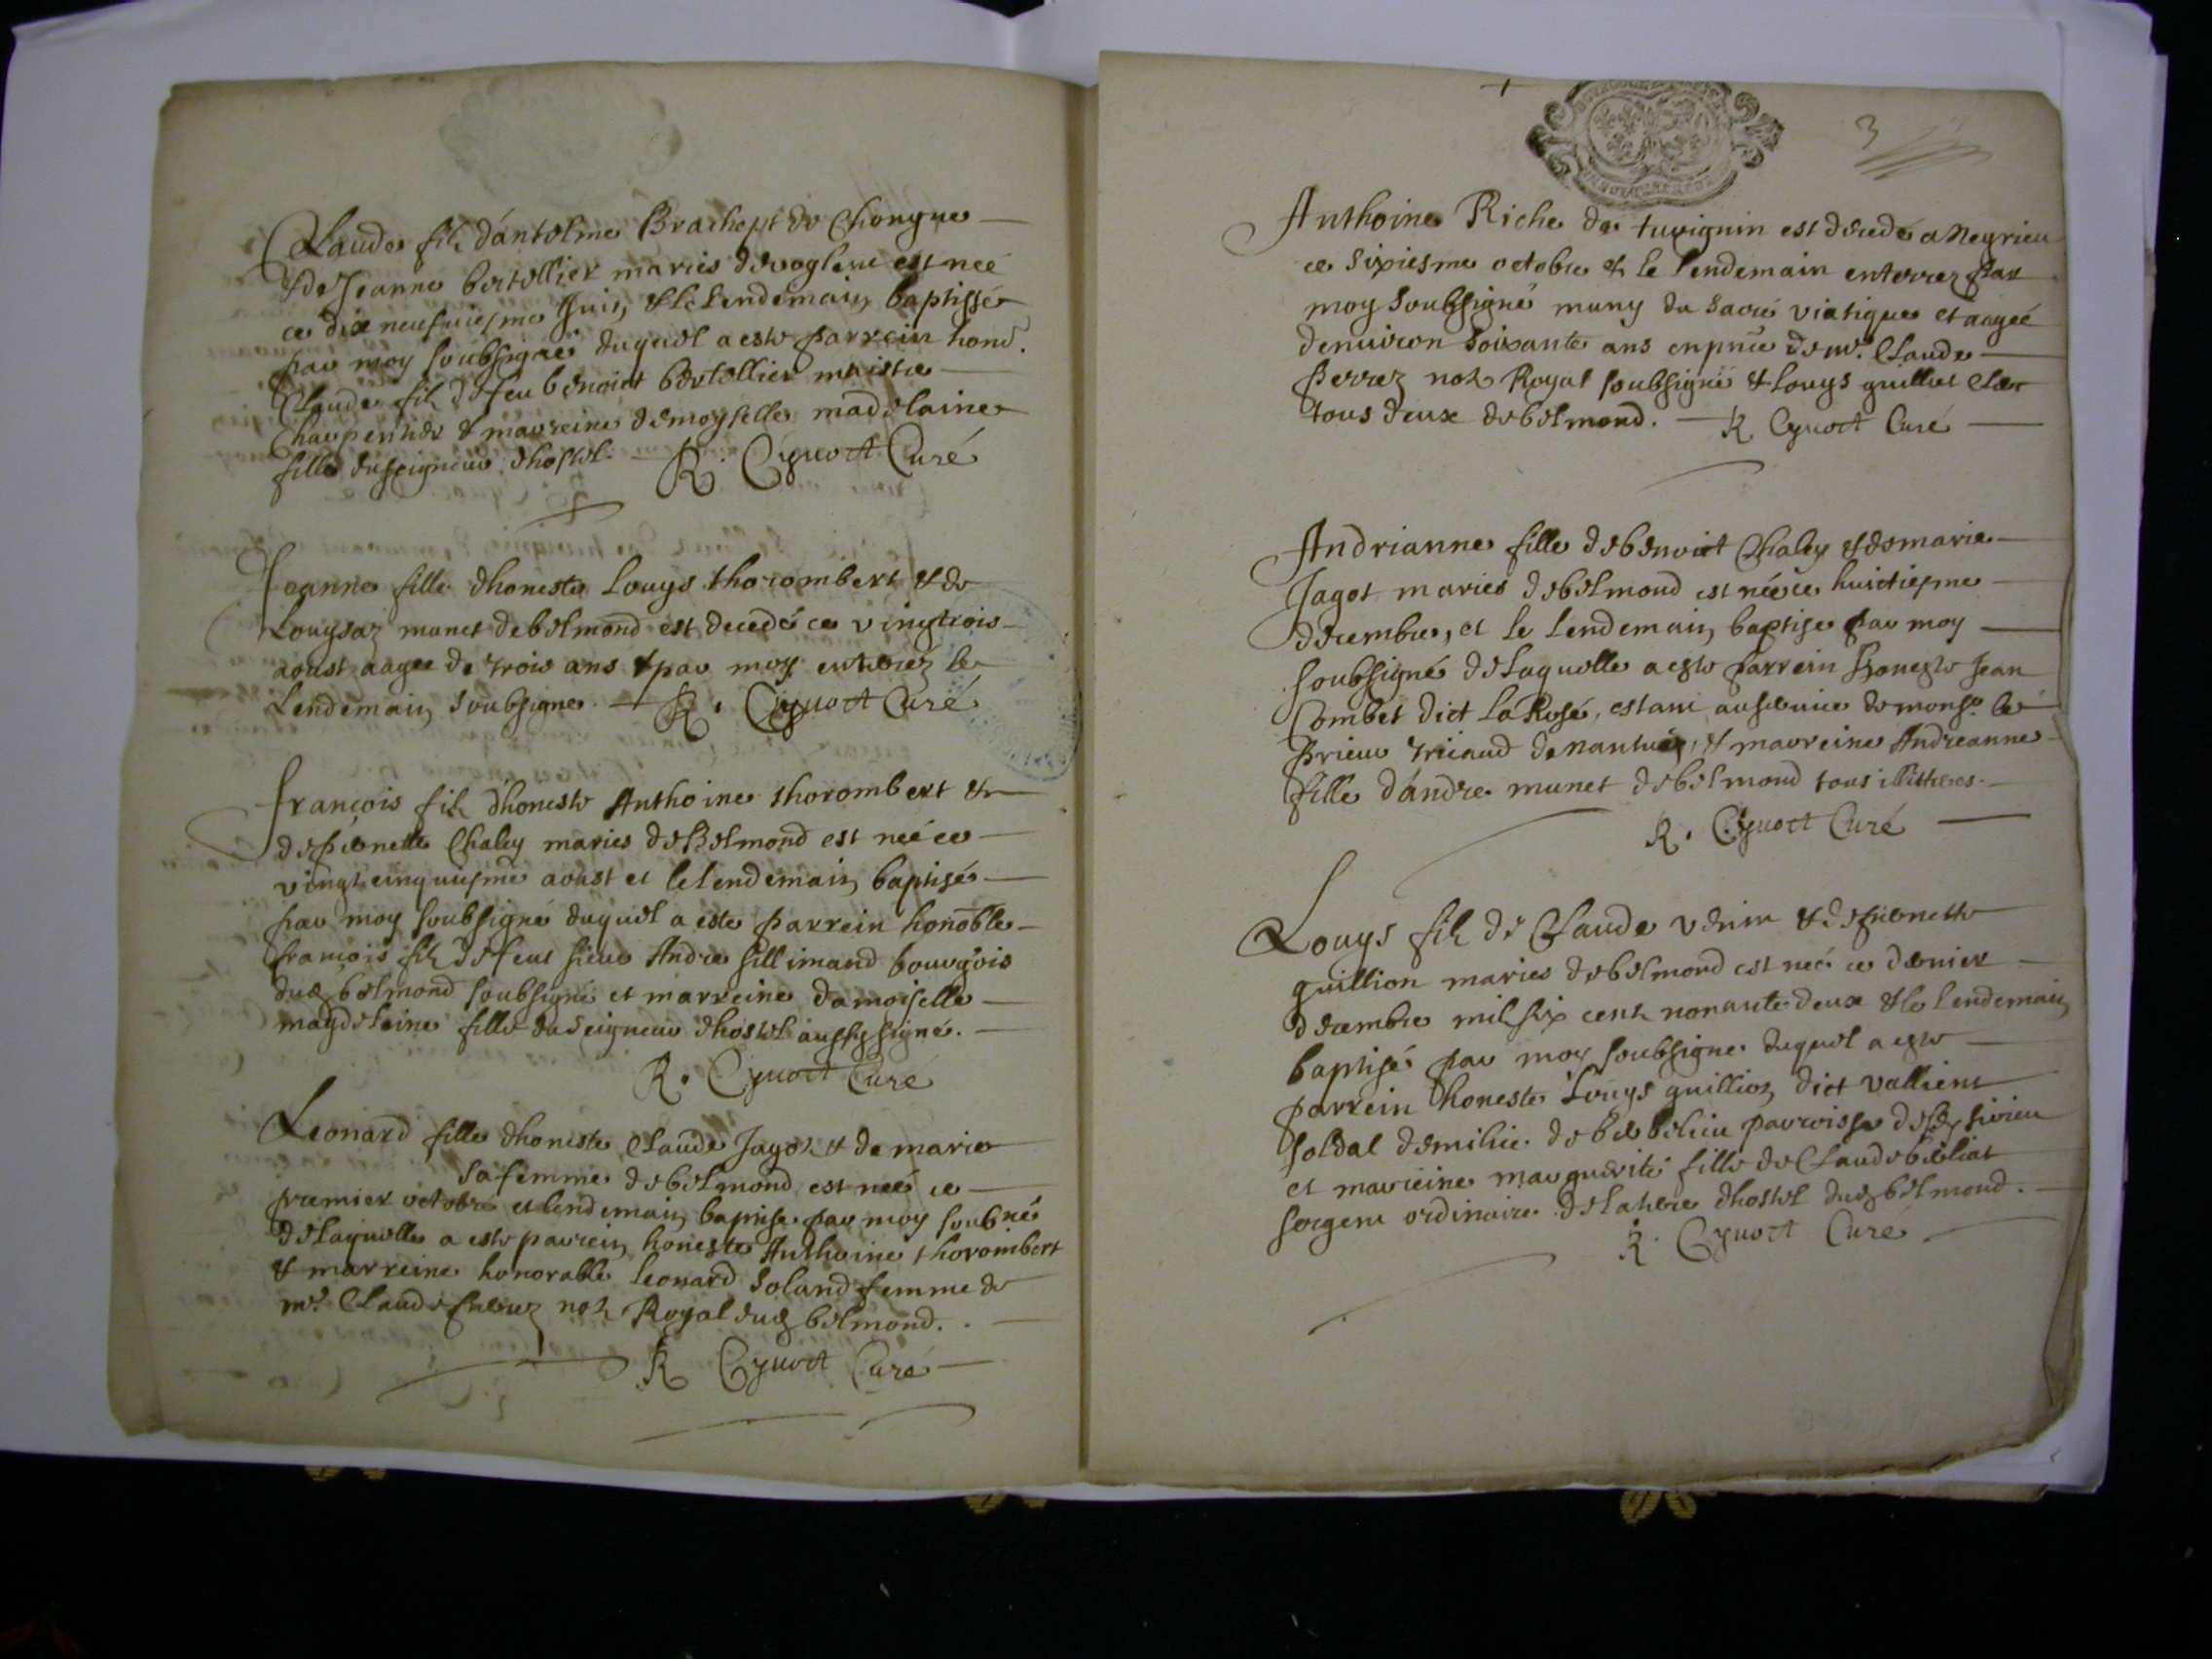 Claude fils dántelme Brachept de Chongne
& de Jeanne bertellier mariés de voglene est neé
ce dix neufuiesme Juin, & le lendemain, baptissé
par moy soubsigné duquel a este parrein hono.
Claude fils de feu benoict bertellier maistre
Charpentier & marreine demoyselle madelaine
fille du seigneur dhostel. R. Cyuoct Curé
Jeanne fille dhoneste Louys thorombert & de
Louysaz munet de belmond est decedé ce vingtrois
aoust aagee de trois ans & par moy enterréz le
Lendemain, soubsigne R. Cyuoct Curé
francois fils dhoneste Anthoine thorombert &
de pernette Chaley mariés de Belmond est neé ce
vingt cinquiesme aoust et le lendemain, baptisé
par moy soubsigné duquel a este parrein honoble
francois fils de feu sieur Andre sillimand bourgois
dud belmond soubsigné et marreine damoiselle
magdeleine fille du seigneur dhostel aussy signé.
R. Cyuoct Curé
Leonard fille dhoneste Claude Jagot & de marie
sa femme de belmond est neé ce
premier octobre et lendemain, baptise par moy soubné
de laquelle a este parrein, honeste Anthoine thorombert
& marreine honorable leonard soland femme de
mr. Claude perrez not. Royal dud belmond.
R Cyuoct Curé
3
Anthoine Riche de tuvignin est decedé a Meyrieu
ce sixiesme octobre & le lendemain enterrez par
moy soubsigné muny du sacré viatique et aageé
denuiron soixante ans en pnce de mr. Claude
perrez not. Royal soubsigné & Louys guilliet clerc
tous deux de belmond. R Cyuoct Curé
Andrianne fille de benoict Chaley & de marie
Jagot mariés de belmond est neé ce huictiesme
decembre, et le lendemain, baptise par moy
soubsigné de laquelle a este parrein honeste Jean
Combet dict la Rosé, estant au seruice de monsr. le
prieur tricaud de nantua, & marreine Andreanne
fille dándre munet de belmond tous illitteres.
R. Cyuoct Curé
Louys fils de Claude & de pernette
guillion mariés de belmond est neé ce dernier
decembre mil six cent nonante deux & le lendemain,
baptisé par moy soubsigne duquel a este
parrein honeste Louys guillion, dict vallient
soldat de milice de parroisse de
et marreine marguerite fille de Claude béliat
sergent ordinaire de la terre dhostel dud belmond.
R. Cyuoct Curé